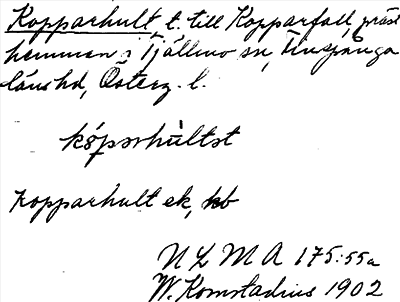 Kopparhult, t. till Kopparfall, präst
hemman i Tjällmo sn, Finspånga
länshd, Österg. l.
kópərhùltət
kopparhult ek, kb
N L M A 175:55a
W. Komstadius 1902